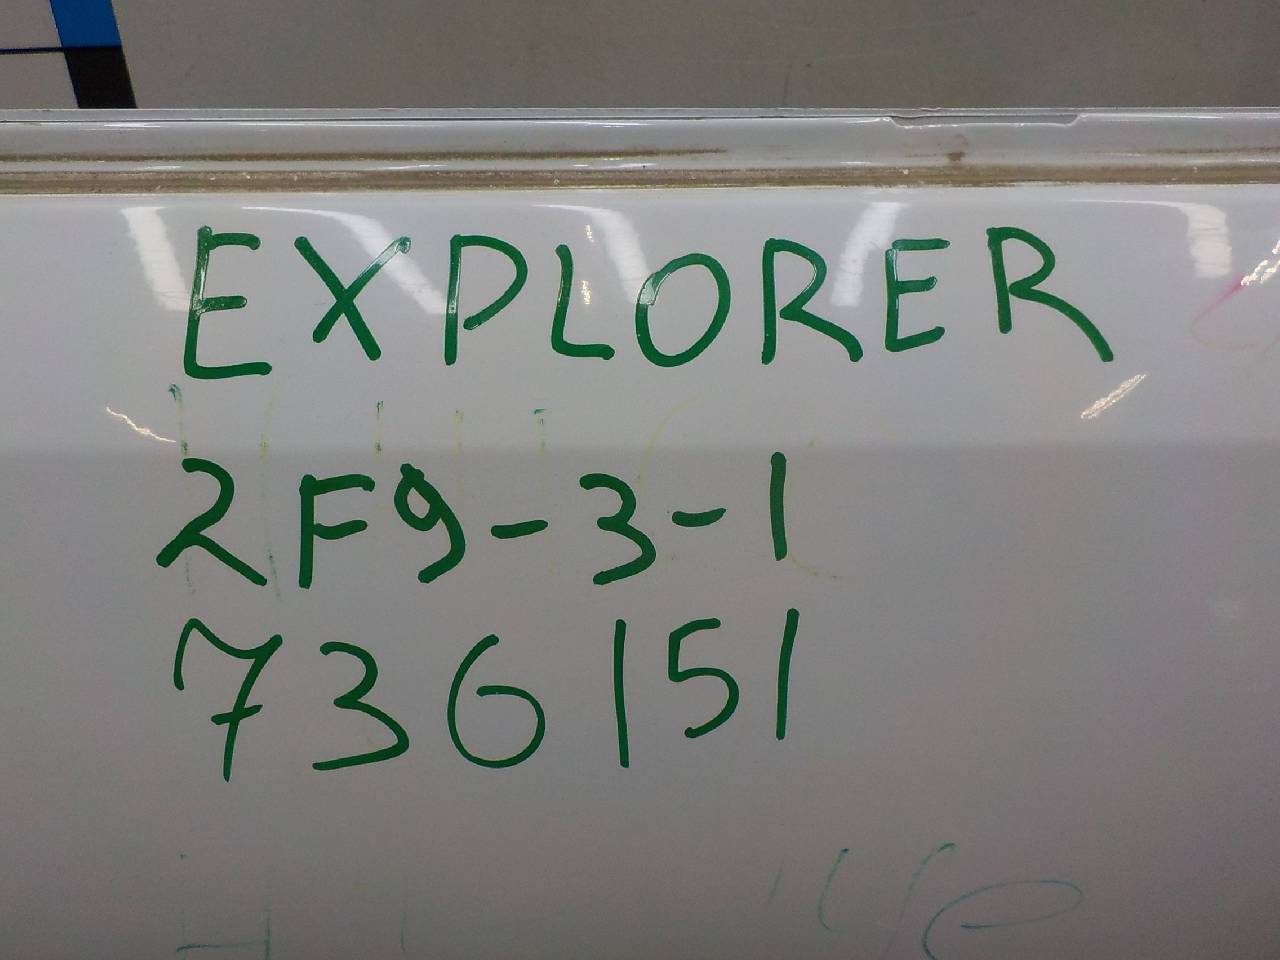 EXPLORER
2F9-3-1
736151